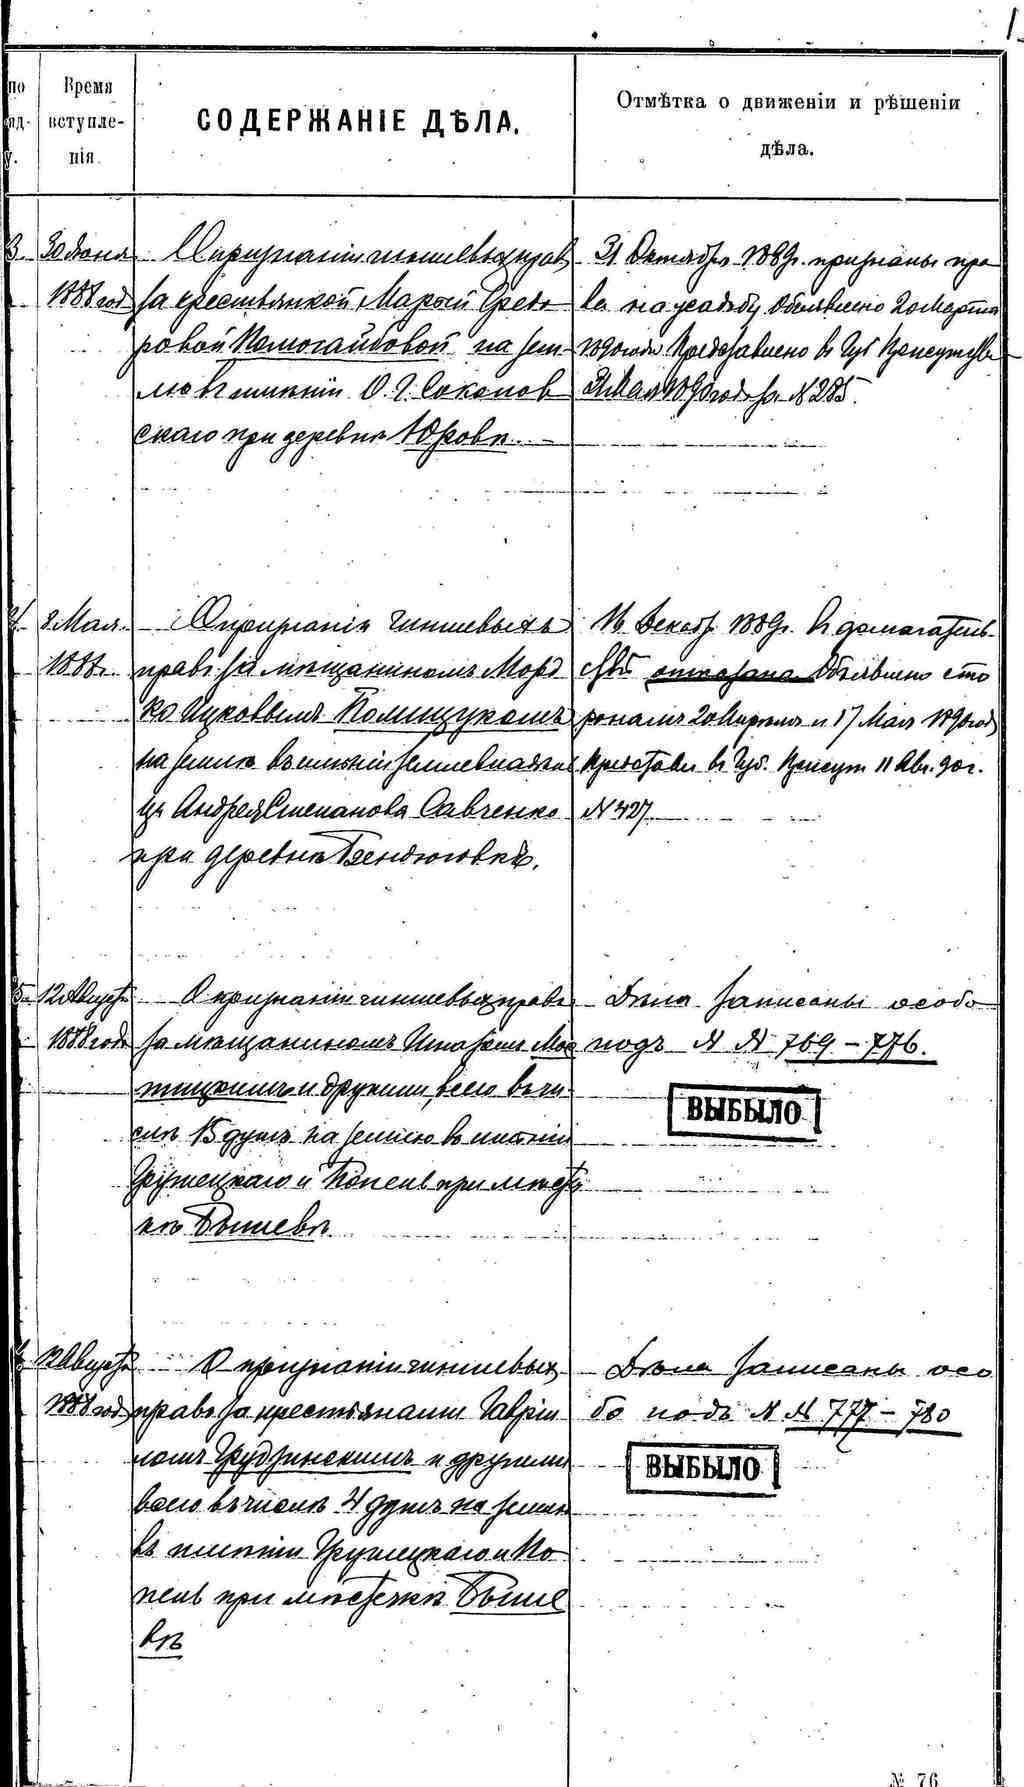 по
яд-
у.
Время
вступле-
нія.
СОДЕРЖАНІЕ ДѢЛА.
Отмѣтка о движеніи и рѣшеніи
дѣла.
3
30 Іюня
1888 год
О признаніи чиншевыхъ прав
за крестьянкой Марьей Федо
ровой на зем
лю въ имѣніи О. Г. Соколов
скаго при деревнѣ Юровкѣ.
31 Октября 1889г. признаны пра
ва на усадьбу Объявлено 20 Марта
1890 года Представлено въ Губ Присутствие
Мая 1890 года за № 285.
4
8 Мая
1888г.
О признаніи чиншевыхъ
правъ за мѣщаниномъ Морд
ко Ицковымъ Полищукомъ
на землю въ имѣніи землевладѣл
ца Андрея Степанова Савченко
при деревнѣ Бендюговкѣ.
16 Декабр 1889г. Въ домогатель-
ствѣ отказано Объявлено сто
ронамъ 20 Марта и 17 Мая 1890 год
Представл въ Губ. Присут 11 Авг. 90г.
№ 427.
5
12 Августа
1888 года
О признаніи чиншевыхъ правъ
за мѣщаниномъ
и другими, всего въ чи-
слѣ 15 душъ на землю въ имѣніи
Грушецкаго и Копець при мѣстеч
кѣ Бышевѣ
Дѣла записаны особо
подъ № № 769 – 776.
ВЫБЫЛО
12 Августа
1888 год
О признаніи чиншевыхъ
правъ за крестьянами Гаврі
ломъ Грудзинскимъ и другими
всего въ числѣ 4 душъ на землю
въ имѣніи Грушецкаго и Ко
пець при мѣстечкѣ Быше
вѣ
Дѣла записаны осо
бо подъ № № 777 – 780
ВЫБЫЛО
№ 76